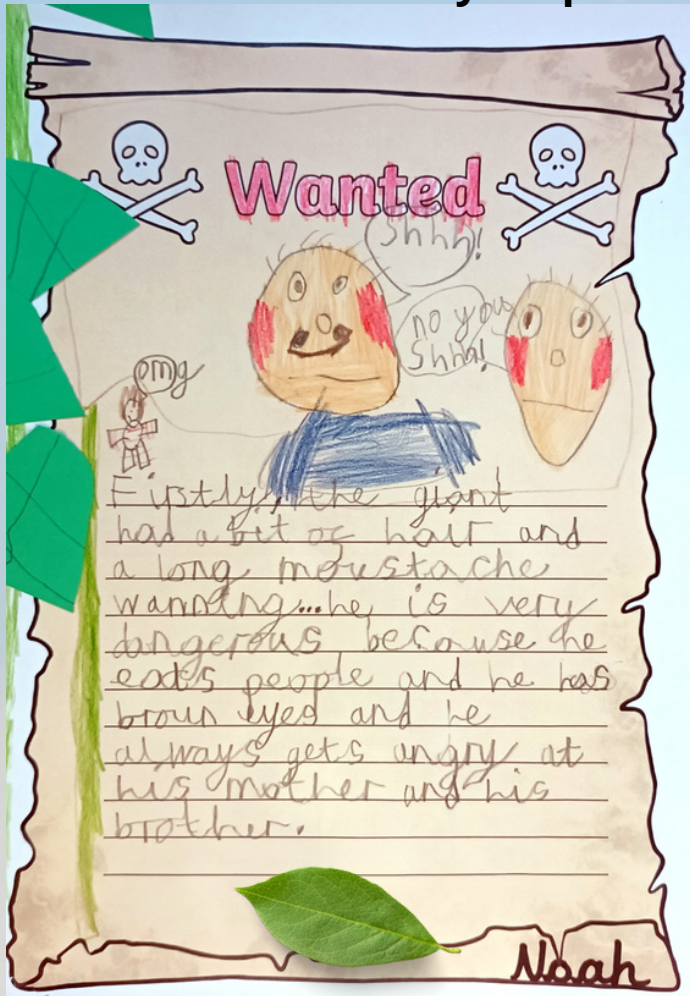 Wanted
Shhh!
no you
Shhh!
omg
Firstly, the giant
had a bit of hair and
a long moustache
wanning...he is very
dangerous because he
eats people and he has
broun eyes and he
always gets angry at
his mother and his
brother.
Noah